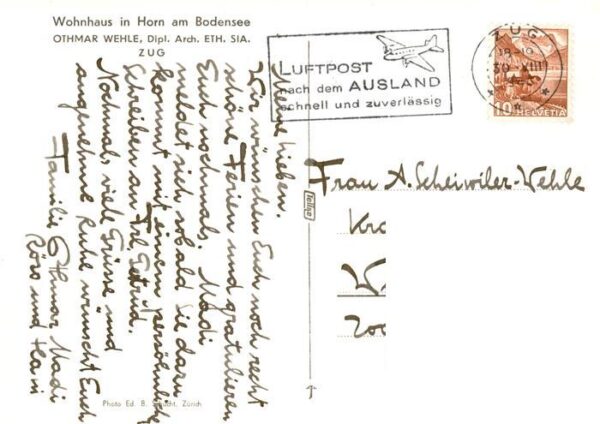 Wohnhaus in Horn am Bodensee
OTHMAR WEHLE, Dipl. Arch. ETH. SIA.
ZUG
LUFTPOST
nach dem AUSLAND
schnell und zuverlässig
ZUG
10 HELVETIA
Meine Lieben.
Wir wünschen Euch noch recht
schöne Ferien und gratulieren
Euch nochmals. Madi
meldet sich sobald Sie dazu
kommt mit einem persönlichen
Schreiben an Frl.
Nochmals viele Grüsse und
angenehme Ruhe wünscht Euch
Familie Othmar Madi
und
Frau A. Scheiwiler-Wehle
Photo Ed. B. Schucht, Zürich